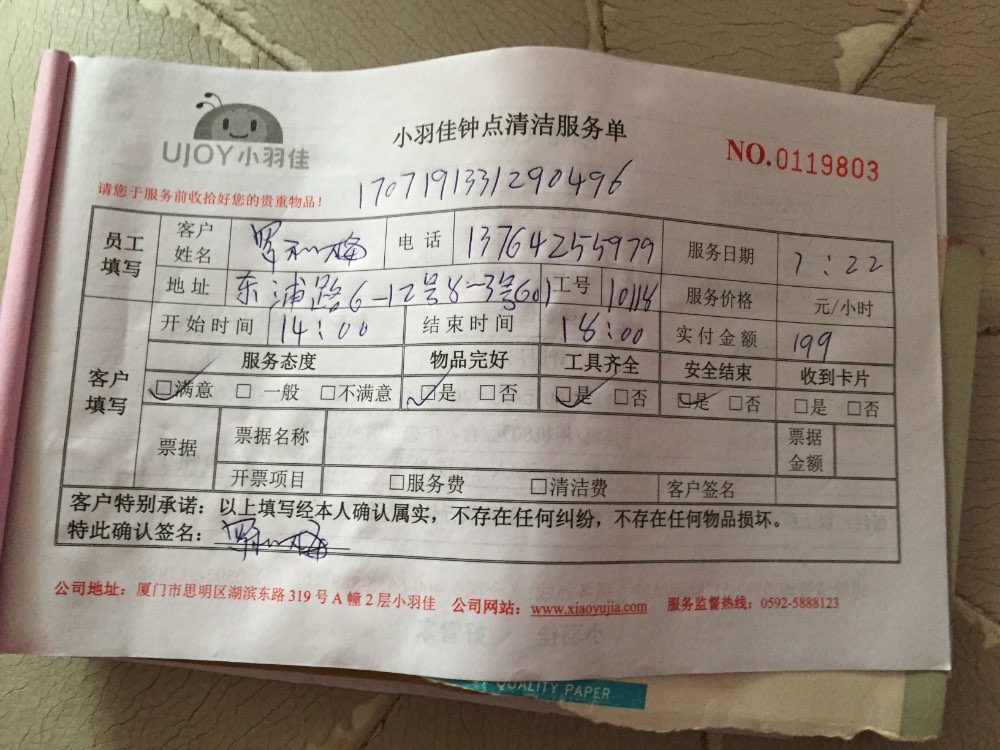 UJOY小羽佳
小羽佳钟点清洁服务单
NO.0119803
请您于服务前收拾好您的贵重物品！
1707191331290496
员工填写 客户姓名 罗和梅 电话 13764255979 服务日期 7:22
地址 东浦路6-12号8-3号601 工号 10118 服务价格 元/小时
客户填写 开始时间 14:00 结束时间 18:00 实付金额 199
服务态度 物品完好 工具齐全 安全结束 收到卡片
☑满意 □一般 □不满意 ☑是 □否 ☑是 □否 ☑是 □否 □是 □否
票据 票据名称 票据金额
开票项目 □服务费 □清洁费 客户签名
客户特别承诺：以上填写经本人确认属实，不存在任何纠纷，不存在任何物品损坏。
特此确认签名：罗和梅
公司地址：厦门市思明区湖滨东路319号A幢2层小羽佳 公司网站：www.xiaoyujia.com 服务监督热线：0592-5888123
QUALITY PAPER